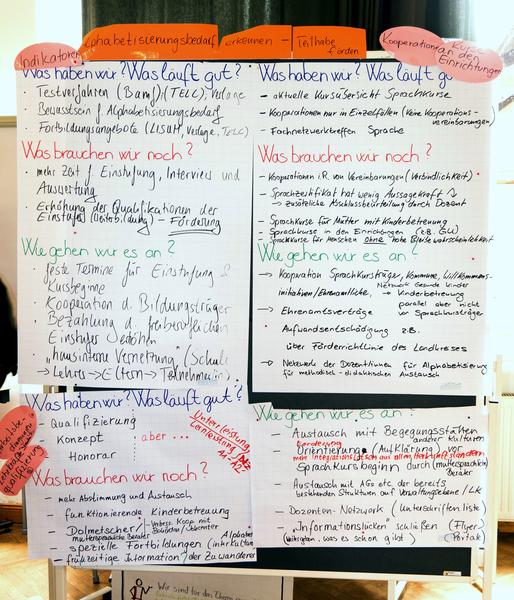 Alphabetisierungsbedarf erkennen - Teilhabe fördern
Indikatoren
Was haben wir? Was läuft gut?
· Testverfahren (Bamf), (TELC), Verlage
· Bewusstsein f. Alphabetisierungsbedarf
· Fortbildungsangebote (LISUM, Verlage, TELC)
Was brauchen wir noch?
· mehr Zeit f. Einstufung, Interview und
Auswertung
· Erhöhung der Qualifikationen der
Einstufer (Weiterbildung) - Förderung
Wie gehen wir es an?
· feste Termine für Einstufung &
Kursbeginne
· Kooperation d. Bildungsträger
· Bezahlung d. freiberuflichen
Einstufer erhöhen
· "hausinterne Vernetzung" (Schule
→ Lehrer → Eltern → Teilnehmer)
Kooperation
Kurse
an den
Einrichtungen
Was haben wir? Was läuft gu
- aktuelle Kursübersicht Sprachkurse
- Kooperationen nur in Einzelfällen (keine Kooperations-
vereinbarungen)
- Fachnetzwerktreffen Sprache
Was brauchen wir noch?
- Kooperationen i.R. von Vereinbarungen (Verbindlichkeit)
- Sprachzertifikat hat wenig Aussagekraft
→ zusätzliche Abschlussbeurteilung durch Dozent
- Sprachkurse für Mütter mit Kinderbetreuung
- Sprachkurse in den Einrichtungen (z.B. GU)
- Sprachkurse für Menschen ohne hohe Bleibewahrscheinlichkeit
Wie gehen wir es an?
→ Kooperation Sprachkursträger, Kommune, Willkommens-
initiativen/Ehrenamtliche, Netzwerk Gesunde Kinder
→ Kinderbetreuung
parallel aber nicht
vor Sprachkursträger
→ Ehrenamtsverträge
Aufwandsentschädigung z.B.
über Förderrichtlinie des Landkreises
→ Netzwerk der Dozent/innen für Alphabetisierung
für methodisch-didaktischen Austausch
Qualifizierung
Was haben wir? Was läuft gut?
- Qualifizierung
- Konzept
- Honorar
aber ...
Was brauchen wir noch?
- mehr Abstimmung und Austausch
- funktionierende Kinderbetreuung
- Dolmetscher/
muttersprachliche Berater
- spezielle Fortbildungen
- frühzeitige Information? der Zuwanderer
Wie gehen wir es an?
- Austausch mit Begegnungsstätten
anderer Kulturen
- Orientierung (Aufklärung) vor
Sprachkursbeginn durch (muttersprachl.)
Berater
- Austausch mit AGs etc. der bereits
bestehenden Strukturen auf Verwaltungsebene / LK
- Dozenten-Netzwerk (Unterschriftenliste
- "Informationslücken" schließen (Flyer,
Portale
was es schon gibt)
Wir sind für den